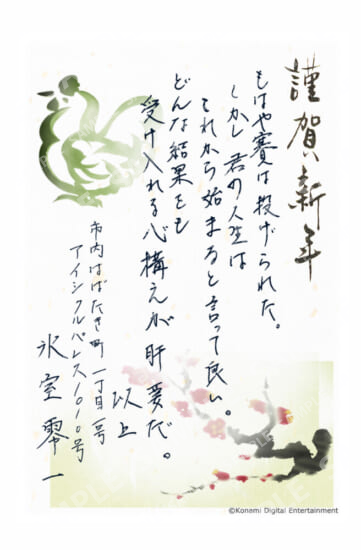 謹賀新年
もはや賽は投げられた。
しかし君の人生は
これから始まると言って良い。
どんな結果をも
受け入れる心構えが肝要だ。
以上
市内はばたき町一丁目一号
アイシクルパレス1010号
氷室零一
©Konami Digital Entertainment